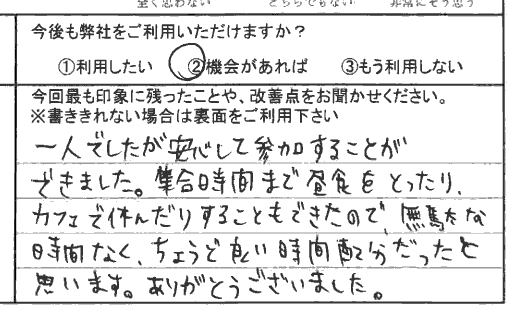 全く思わない どちらでもない 非常にそう思う
今後も弊社をご利用いただけますか？
①利用したい ②機会があれば ③もう利用しない
今回最も印象に残ったことや、改善点をお聞かせください。
※書ききれない場合は裏面をご利用下さい
一人でしたが安心して参加することが
できました。集合時間まで昼食をとったり、
カフェで休んだりすることもできたので、無駄な
時間なく、ちょうど良い時間配分だったと
思います。ありがとうございました。